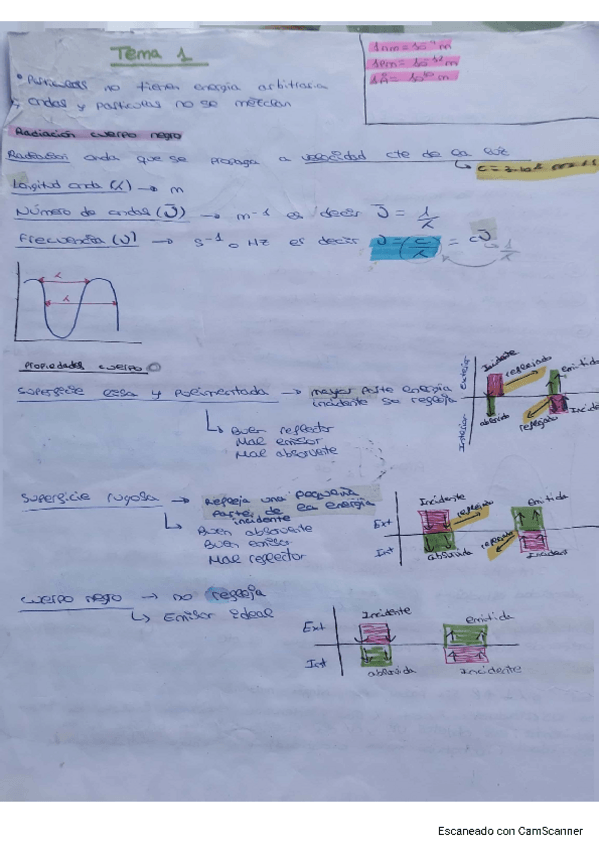 Tema 1
1nm = 10⁻⁹ m
1pm = 10⁻¹² m
1Å = 10⁻¹⁰ m
• Particulas no tienen energia arbitraria
↳ ondas y particulas no se mezclan
Radiación cuerpo negro
Radiación onda que se propaga a velocidad cte de la luz
↳ c =
Longitud onda (λ) → m
Número de ondas (ῡ) → m⁻¹ es decir ῡ = 1/λ
Frecuencia (υ) → s⁻¹ o Hz es decir υ = (c/λ) = cῡ
1/λ
λ
λ
Propiedades cuerpo
Superficie lisa y pulimentada → mayor parte energia
incidente se refleja
↳ Buen reflector
Mal emisor
Mal absorvente
Exterior
Interior
Incidente
reflejado
absorvida
emitida
reflejado
Incide
Superficie rugosa → Refleja una pequeña
parte de la energia
incidente
↳ Buen absorvente
Buen emisor
Mal reflector
Ext
Int
Incidente
reflejado
absorvida
emitida
reflejado
Incident
Cuerpo negro → no refleja
↳ Emisor ideal
Ext
Int
Incidente
absorvida
emitida
Incidente
Escaneado con CamScanner